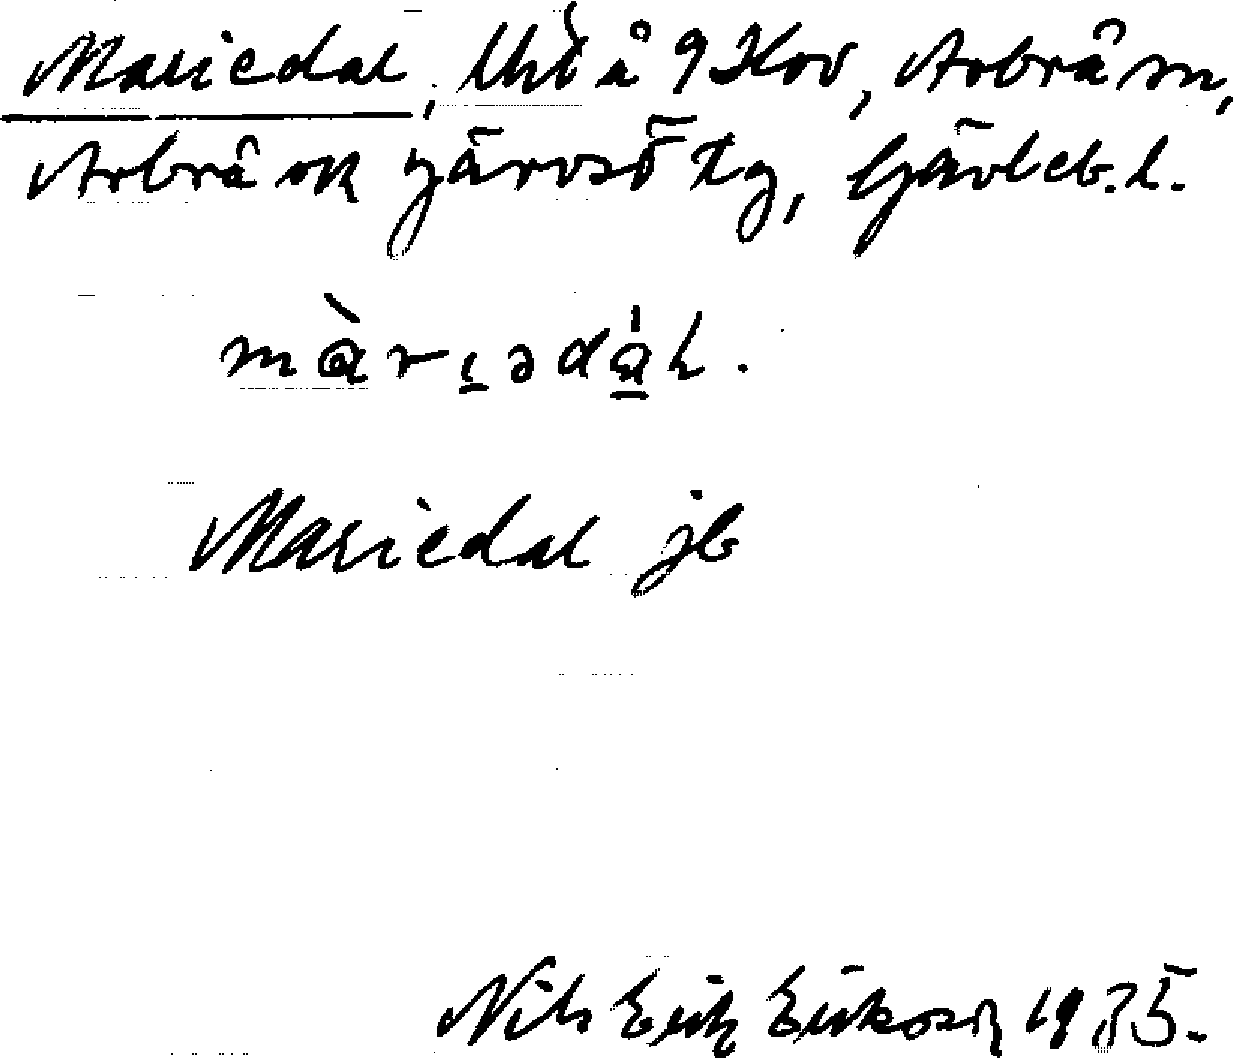 Mariedal, lht å 9 Kov, Arbrå sn,
Arbrå ok Järvsö tg, Gävleb. l.
màrɩ̱ədá̱l.
Mariedal jb
Nils Erik Eriksson 1935.